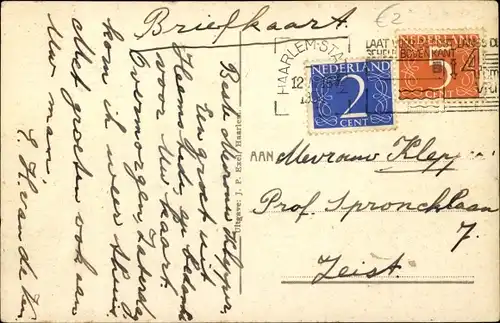 Briefkaart.
€2
HAARLEM-STA
12
LAAT
LANGS DE
BOVEN KANT
NEDERLAND
2
CENT
NEDERLAND
3
CENT
AAN
Mevrouw Klepper
Prof. Sproncklaan
7.
Zeist.
Uitgave: J. P. Exel, Haarlem
Beste Mevrouw Klepper,
Een groet uit
Heemstede en bedankt
voor Uw kaart.
Overmorgen, Zaterdag
kom ik weer thuis.
Met groeten ook aan
Uw man.